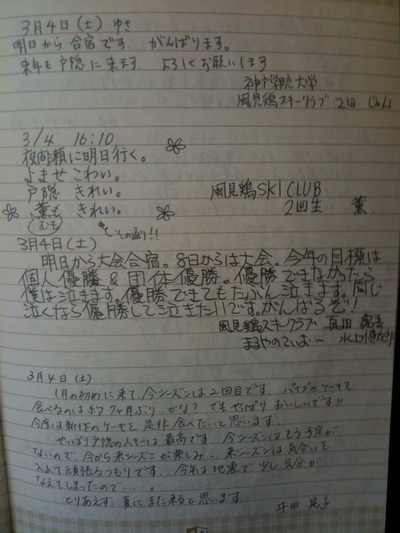 3月4日(土) ゆき
明日から合宿です。がんばります。
来年も戸隠に来ます。よろしくお願いします
神戸学院大学
風見鶏スキークラブ 2回 じゅん
3/4 16:10
夜間瀬に明日行く。
よませ こわい。
戸隠 きれい。
薫も きれい。
風見鶏SKI CLUB
2回生 薫
3月4日(土)
明日から大会合宿。8日からは大会。今年の目標は
個人優勝&団体優勝。優勝できなかったら
僕は泣きます。優勝できてもたぶん泣きます。同じ
泣くなら優勝して泣きたいです。がんばるぞ!!
風見鶏スキークラブ
3月4日(土)
1月の初めに来て、今シーズンは2回目です。パイプのケーキを
食べるのは約7ヶ月ぶり…かな? でもやっぱりおいしいです!!
今度は新作のケーキを是非食べたいと思います。
やっぱり戸隠のスキーは最高です。今シーズンはもう予定が
ないので、今から来シーズンが楽しみ。来シーズンは気合いを
入れて頑張るつもりです。今年は地震で少し気分が
なえてしまったので…。
とりあえず、夏にまた来ると思います。